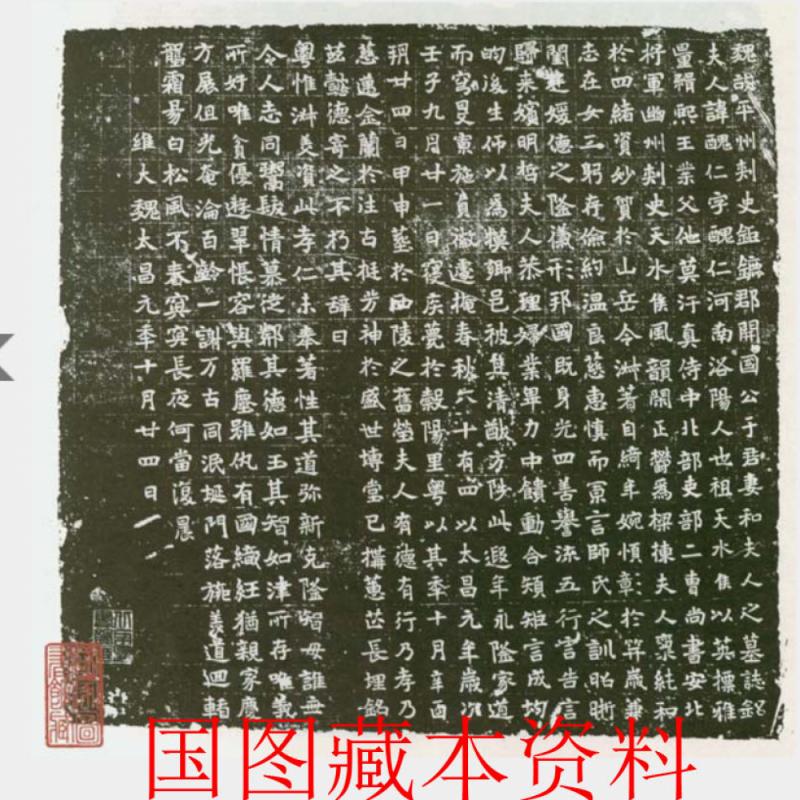 魏故平州刺史鉅鏕郡開國公于君妻和夫人之墓誌銘
夫人諱醜仁字醜仁河南洛陽人也祖天水侯以英摽雅
量緝熙王業父他莫汗真侍中北部吏部二曹尚書安北
將軍幽州刺史天水侯風韻閑正鬱爲樑棟夫人稟純和
於四緒資妙質於山岳令淑著自綺年婉慎彰於笄歲兼
志在女工躬存儉約温良慈惠慎而寡言師氏之訓昭晰
閨 媛德之隆儀形邦國既身光四善譽流五行言告言
歸来嬪明哲夫人恭理婦業畢力中饋動合規矩言成均
的後生師以爲摸鄉邑被其清猷方陟此遐年永隆家道
而穹旻寡施 遽掩春秋六十有四以太昌元年歲次
壬子九月廿一日寑疾薨於穀陽里粤以其年十月辛酉
朔廿四日甲申葬於西陵之舊塋夫人有德有行乃孝乃
慈邁金蘭於往古挺芳神於盛世塼堂已搆蕙 長埋銘
茲懿德寄之不朽其辭曰
粤惟淑美資此孝仁未奉著性其道弥新克隆智母誰無
令人志同 情慕 其德如玉其智如津所存唯義
所好唯貧優遊翠悵容與羅塵雖仇有國纖紝猶親家慶
方展伹光奄淪百齡一謝万古同泯埏門落施羨道迴輴
壟霜易白松風不春寘寘長夜何當復晨
維大魏太昌元年十月廿四日
国图藏本资料